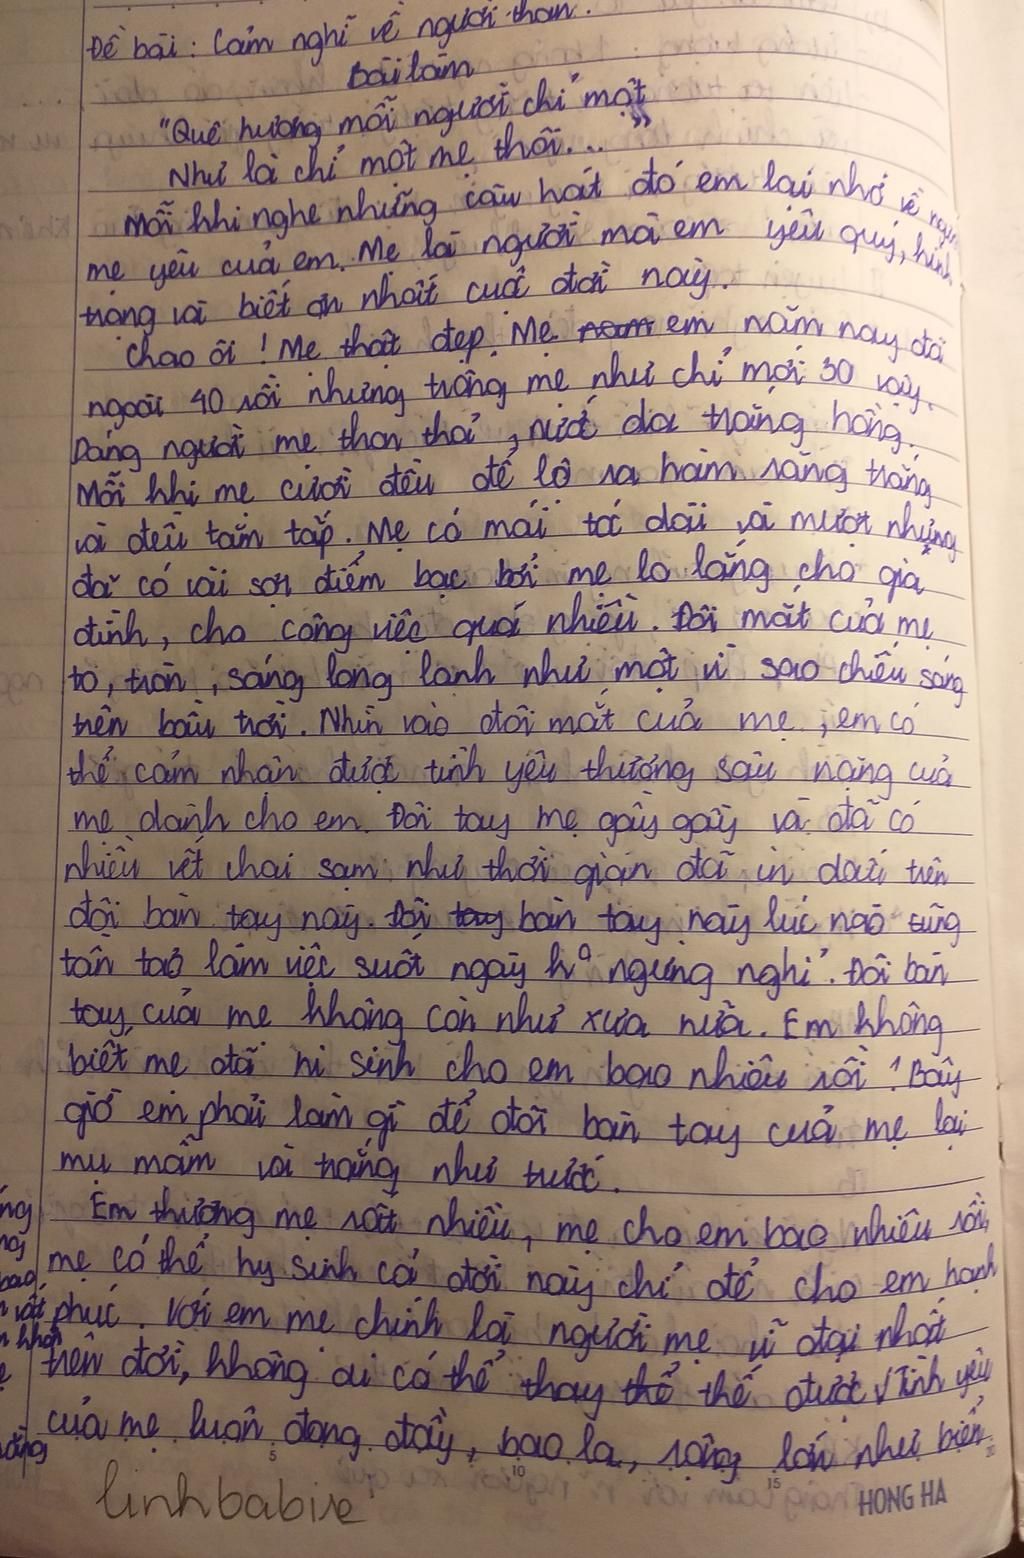 Đề bài: Cảm nghĩ về người thân.
Bài làm
"Quê hương mỗi người chỉ một
Như là chỉ một mẹ thôi..."
Mỗi khi nghe những câu hát đó em lại nhớ về người
mẹ yêu của em. Mẹ là người mà em yêu quý, kính
trọng và biết ơn nhất cuộc đời này.
Chao ôi! Mẹ thật đẹp. Mẹ em năm nay đã
ngoài 40 rồi nhưng trông mẹ như chỉ mới 30 vậy.
Dáng người mẹ thon thả, nước da trắng hồng.
Mỗi khi mẹ cười đều để lộ ra hàm răng trắng
và đều tăm tắp. Mẹ có mái tóc dài và mượt nhưng
đã có vài sợi điểm bạc bởi mẹ lo lắng cho gia
đình, cho công việc quá nhiều. Đôi mắt của mẹ
to, tròn, sáng long lanh như một vì sao chiếu sáng
trên bầu trời. Nhìn vào đôi mắt của mẹ, em có
thể cảm nhận được tình yêu thương sâu nặng của
mẹ dành cho em. Đôi tay mẹ gầy gầy và đã có
nhiều vết chai sạm như thời gian đã in dấu trên
đôi bàn tay này. Đôi bàn tay này lúc nào cũng
tần tảo làm việc suốt ngày k° ngưng nghỉ. Đôi bàn
tay của mẹ không còn như xưa nữa. Em không
biết mẹ đã hi sinh cho em bao nhiêu rồi! Bây
giờ em phải làm gì để đôi bàn tay của mẹ lại
mụ mẫm và trắng như trước.
Em thương mẹ rất nhiều, mẹ cho em bao nhiêu rồi,
mẹ có thể hy sinh cả đời này chỉ để cho em hạnh
phúc. Với em mẹ chính là người mẹ vĩ đại nhất
trên đời, không ai có thể thay thế được. Tình yêu
của mẹ luôn đong đầy, bao la, rộng lớn như biển
linhbabie
HONG HA
5
10
15
20